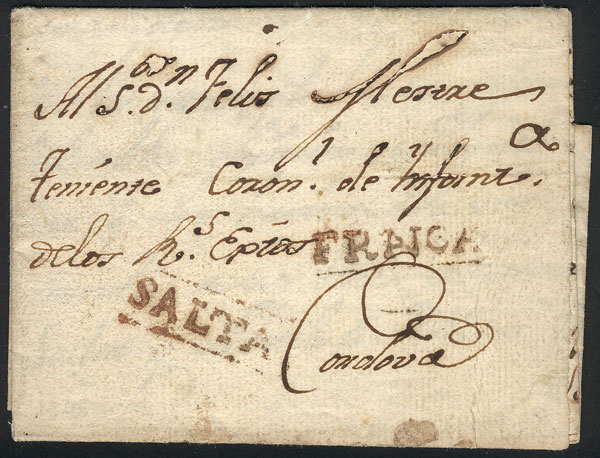 Al S.or d.n Felis Mestre
teniente Coron.l de Infant.a
delos R.s Extos
FRANCA
SALTA
Cordova